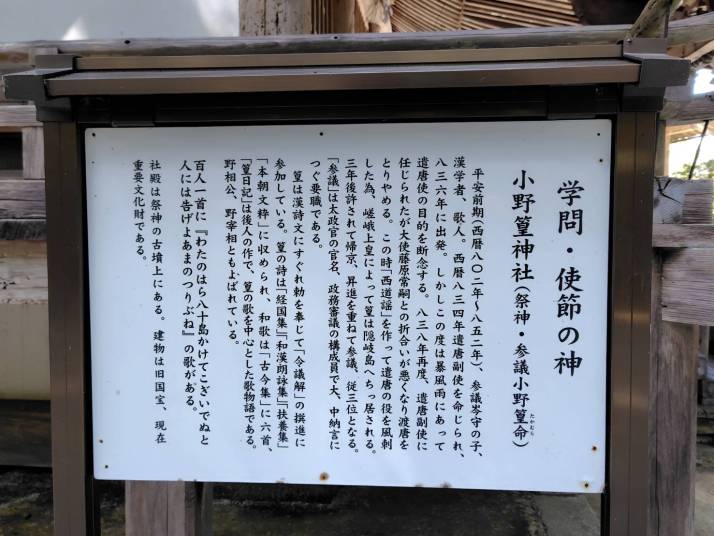 学問・使節の神
小野篁神社(祭神・参議小野篁命)
たかむら
平安前期(西暦八〇二年〜八五二年)、参議岑守の子、
漢学者、歌人。西暦八三四年遣唐副使を命じられ、
八三六年に出発。しかしこの度は暴風雨にあって
遣唐使の目的を断念する。八三八年再度、遣唐副使に
任じられたが大使藤原常嗣との折合いが悪くなり渡唐を
とりやめる。この時「西道謡」を作って遣唐の役を風刺
した為、嵯峨上皇によって篁は隠岐島へちっ居される。
三年後許されて帰京、昇進を重ねて参議、従三位となる。
「参議」は太政官の官名、政務審議の構成員で大、中納言に
つぐ要職である。
篁は漢詩文にすぐれ勅を奉じて「令議解」の撰進に
参加している。篁の詩は「経国集」「和漢朗詠集」「扶養集」
「本朝文粋」に収められ、和歌は「古今集」に六首、
「篁日記」は後人の作で、篁の歌を中心とした歌物語である。
野相公、野宰相ともよばれている。
百人一首に『わたのはら八十島かけてこぎいでぬと
人には告げよあまのつりぶね』の歌がある。
社殿は祭神の古墳上にある。建物は旧国宝、現在
重要文化財である。